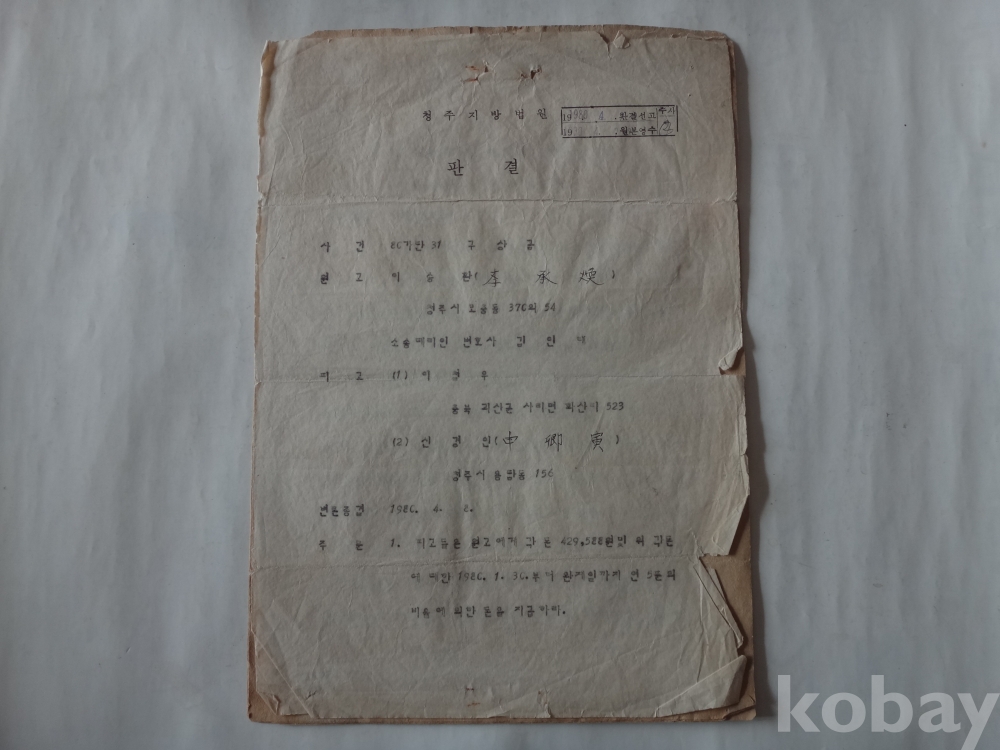 청주지방법원
판결선고
원본영수
주사
판 결
사 건 80가단 31 구 상 금
원 고 이 승 환 ( 李 承 煥 )
청주시 모충동 370의 54
소송대리인 변호사 김 인
피 고 (1) 이 우
충북 괴산군 사리면 523
(2) 신 경 인 ( 申 卿 寅 )
청주시 용암동 156
변론종결 1980. 4. 2.
주 문 1. 피고들은 원고에게 각 돈 429,588원및 위 각돈
에 대한 1980. 1. 30.부터 완제일까지 연 5푼의
비율에 의한 돈을 지급하라.
kobay